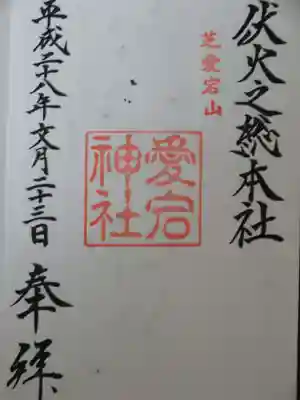 伏火之総本社
芝愛宕山
愛宕
神社
奉拝
平成二十八年文月二十三日